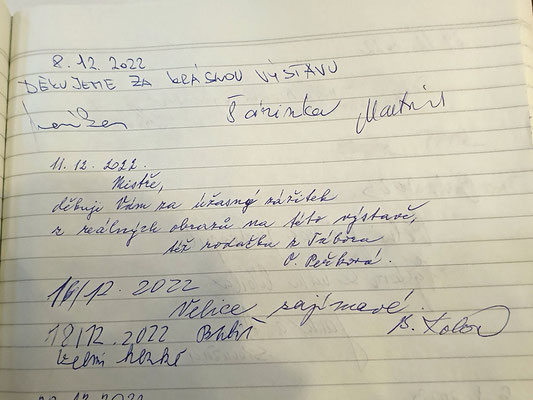 8.12.2022
DĚKUJEME ZA KRÁSNOU VÝSTAVU
Šárinka
11.12.2022.
Mistře,
děkuji Vám za úžasný zážitek
z reálných obrazů na této výstavě,
též rodačka z Tábora
16/12. 2022
Velice zajímavé.
18/12.2022
velmi hezké